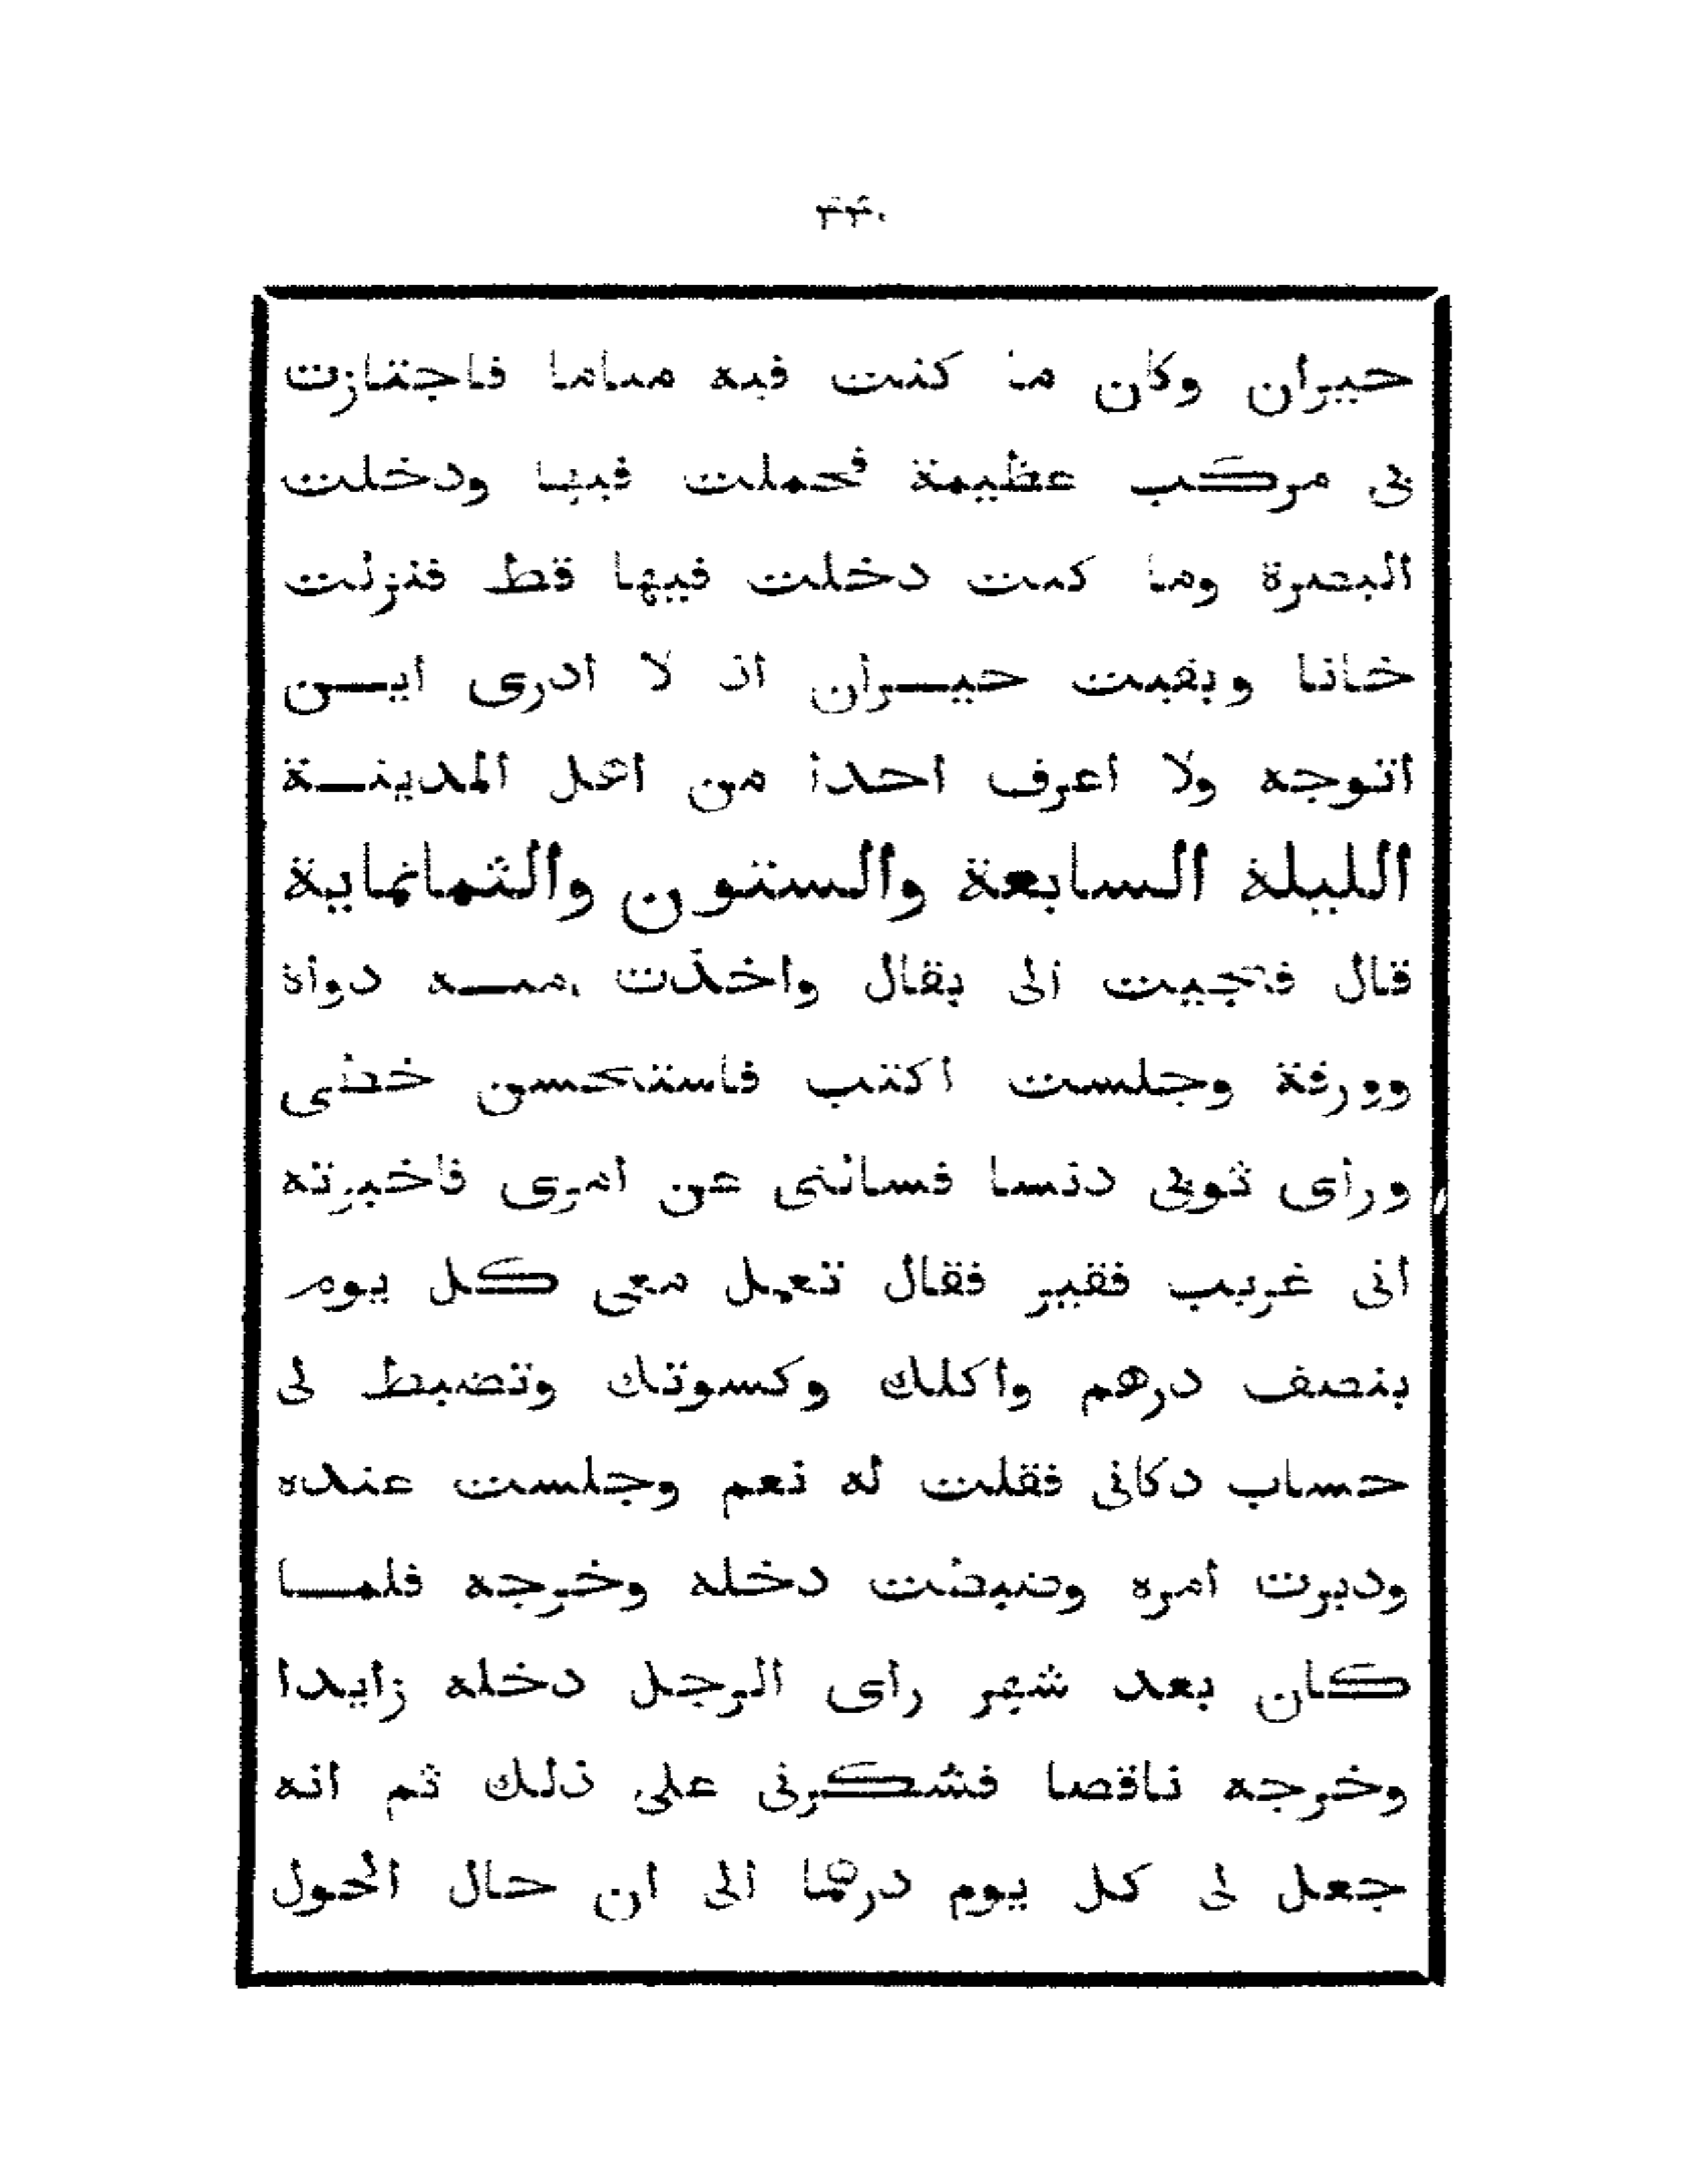 ٤٤٠
حيران وكان ما كنت فيه مناما فاجتازت
بى مركب عظيمة فحملت فيها ودخلت
البصرة وما كنت دخلت فيها قط فنزلت
خانا وبقيت حيـــران اذ لا ادرى ايـــن
اتوجه ولا اعرف احدا من اهل المدينـــة
الليلة السابعة والستون والثمانماية
قال فجيت الى بقال واخذت منـــه دواة
وورقة وجلست اكتب فاستحسن خطى
وراى ثوبى دنسا فسالنى عن امرى فاخبرته
انى غريب فقير فقال تعمل معى كل يوم
بنصف درهم واكلك وكسوتك وتضبط لى
حساب دكانى فقلت له نعم وجلست عنده
ودبرت امره وضبطت دخله وخرجه فلمـــا
كان بعد شهر راى الرجل دخله زايدا
وخرجه ناقصا فشكرنى على ذلك ثم انه
جعل لى كل يوم درهما الى ان حال الحول